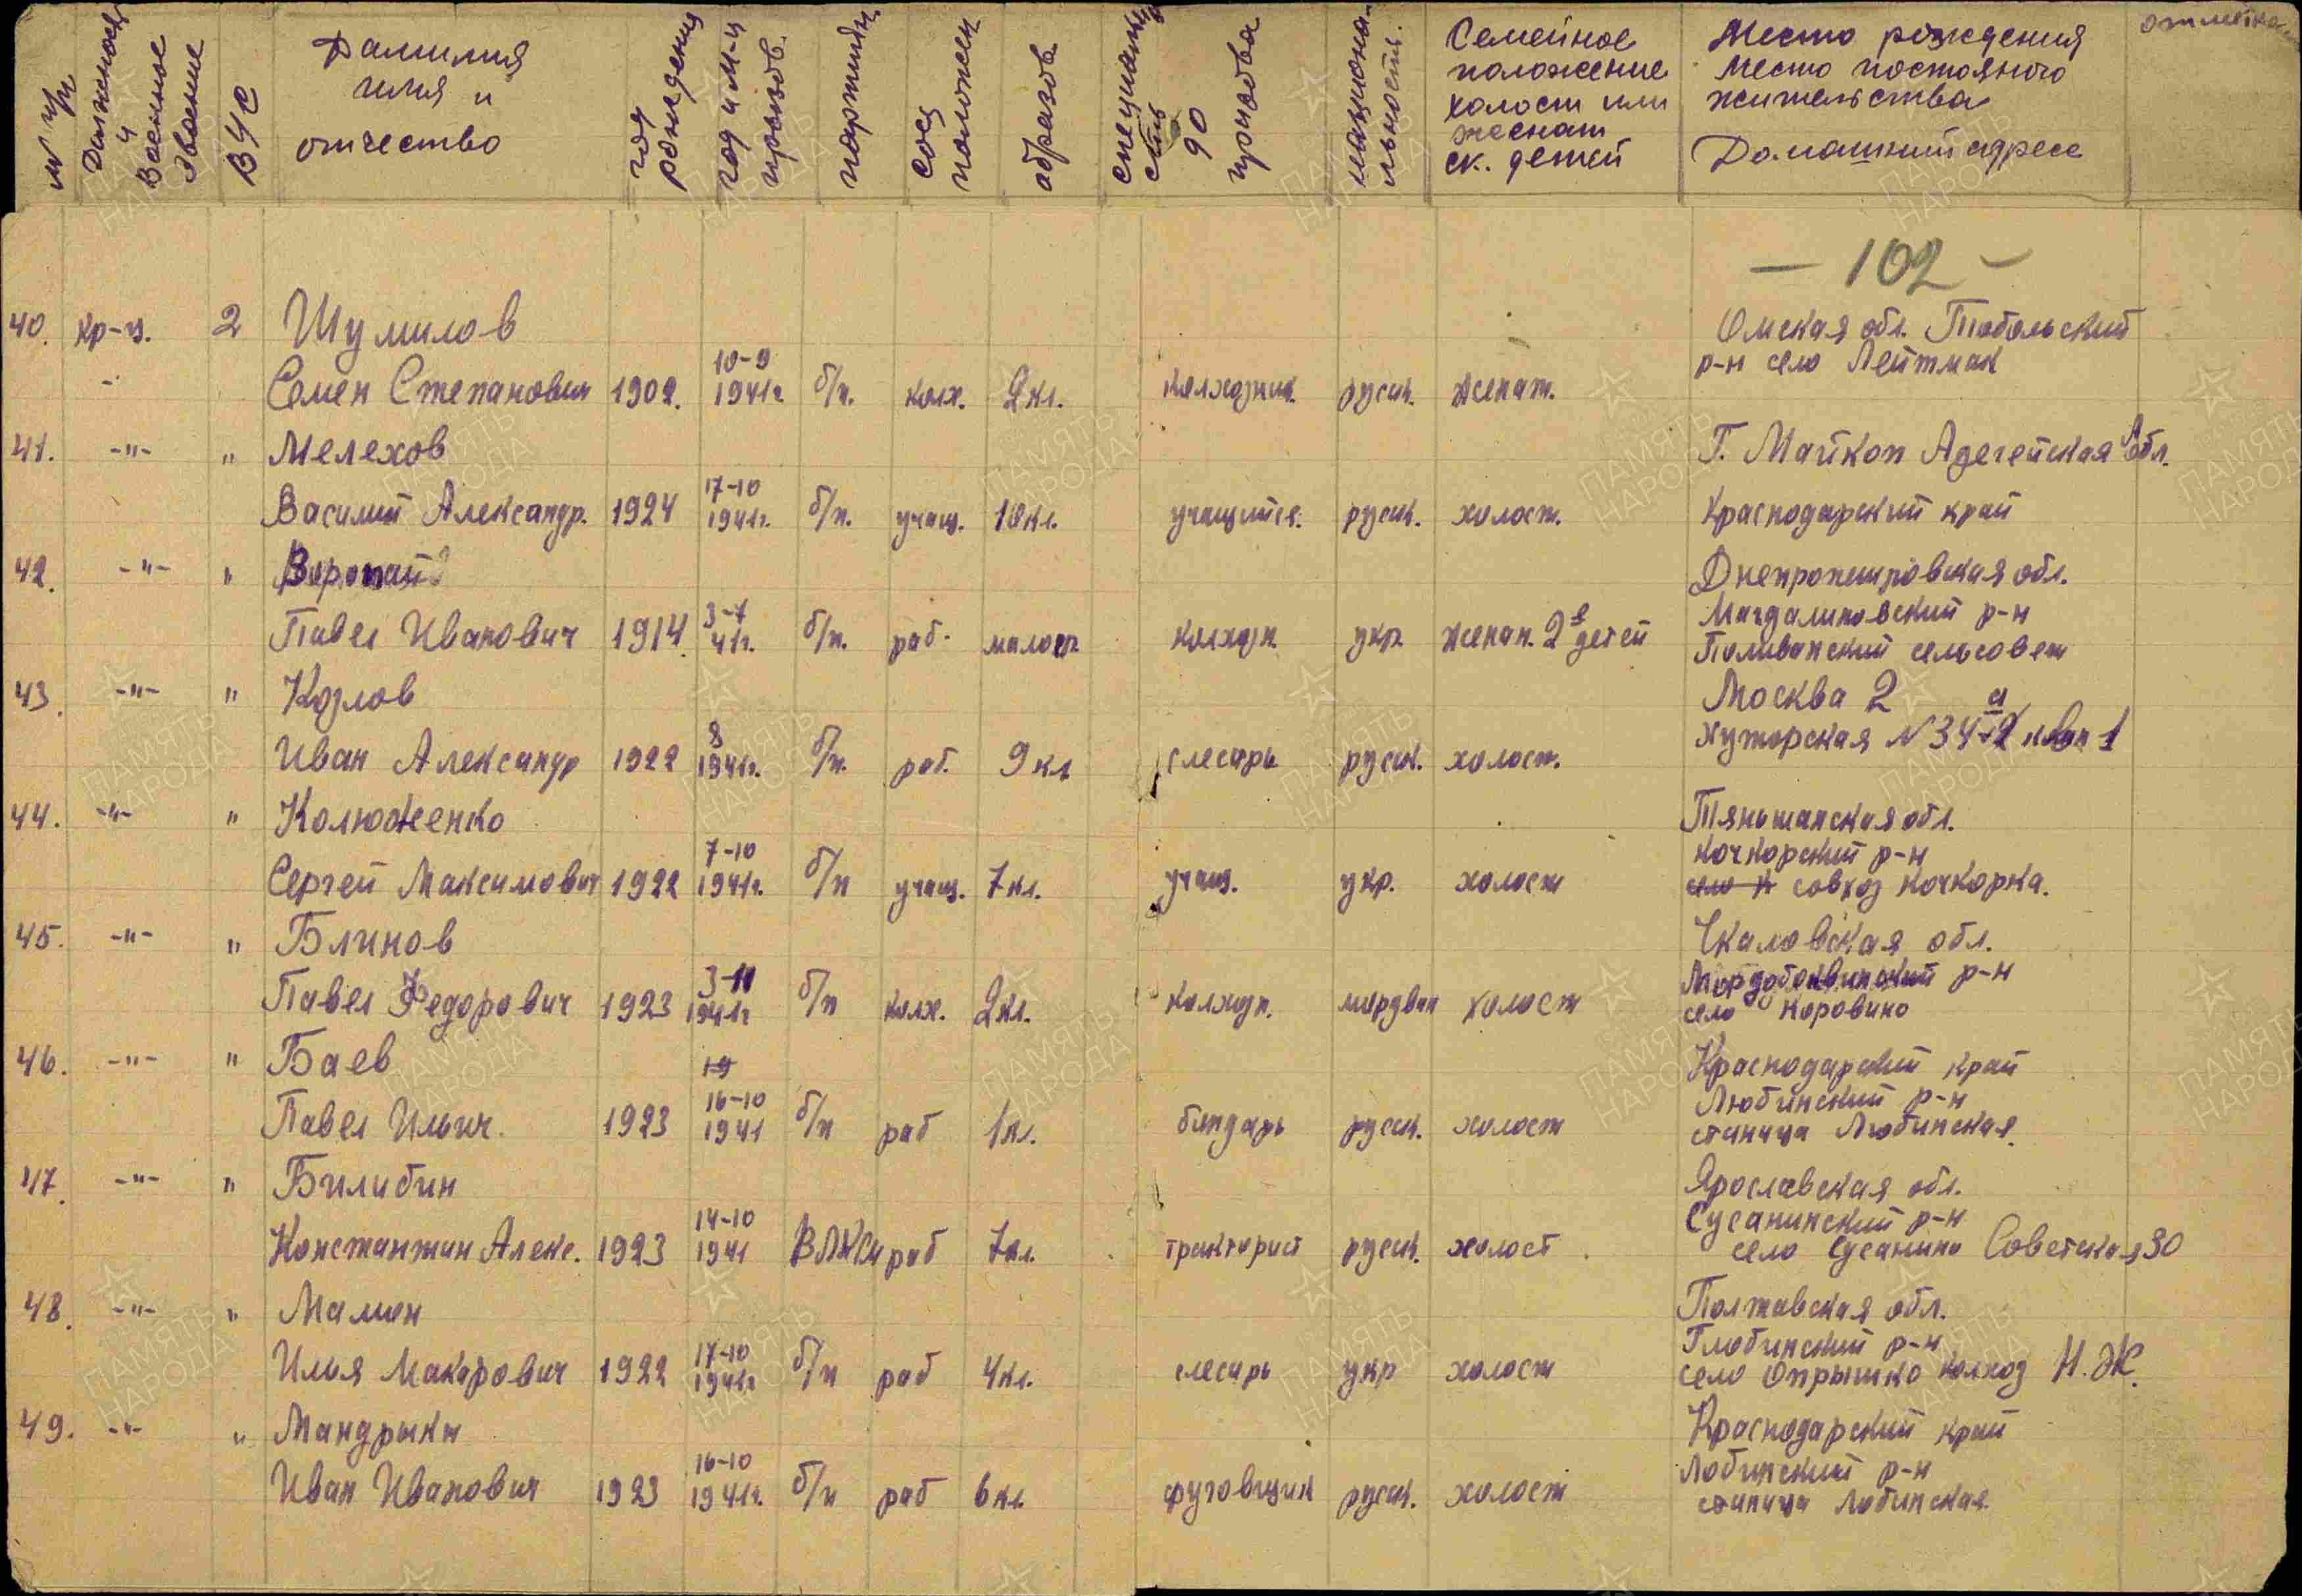 № пп Должность и Военное звание ВУС Фамилия имя и отчество год рождения год и м-ц призыв. партийн соц положен образов. специальн сть до призыва национа- льность. Семейное положение холост или женат ск. детей Место рождения Место постояного жительства Домашний адресс отметка
- 102 -
40. кр-ц. 2 Шумилов Омская обл. Тобольский
р-н село Лейтмак
Семен Степанович 1902. 10-9 1941г. б/п. колх. 2 кл. колхозник. русск. женат.
41. -"- " Мелехов Г. Майкоп Адегейская А обл.
Василий Александр. 1924 17-10 1941г. б/п. учащ. 10 кл. учащийся. русск. холост. Краснодарский край
42. -"- " Воропай Днепропетровская обл.
Магдалиновский р-н
Павел Иванович 1914. 3-7 41г. б/п. раб. малогр. колхозн. укр. женат. 2е детей Поливанский сельсовет
43. -"- " Козлов Москва 2
Иван Александр 1922 8 1941г. б/п. раб. 9 кл слесарь русск. холост. Хуторская №34
44. -"- " Колюженко Тяньшанская обл.
Кочкорский р-н
Сергей Максимович 1922 7-10 1941г. б/п учащ. 7 кл. учащ. укр. холост село К совхоз Кочкорка.
45. -"- " Блинов Чкаловская обл.
Мордобоквинский р-н
Павел Федорович 1923 3-11 1941г б/п колх. 2 кл. колхозн. мордвин холост село Коровино
46. -"- " Баев 19 Краснодарский край
Любинский р-н
Павел Ильич. 1923 16-10 1941 б/п раб 1 кл. бондарь русск. холост станица Любинская.
47. -"- " Билибин Ярославская обл.
Сусанинский р-н
Константин Алекс. 1923 14-10 1941 ВЛКСМ раб 7 кл. тракторист русск. холост село Сусанино Советская 30
48. -"- " Мамон Полтавская обл.
Глобинский р-н
Илья Макарович 1922 17-10 1941г б/п раб 4 кл. слесарь укр холост село Опрышко колхоз Н.Ж.
49. -"- " Мандрыкн Краснодарский край
Лобинский р-н
Иван Иванович 1923 16-10 1941г. б/п раб 6 кл. фуговщик русск. холост станица Лобинская.
ПАМЯТЬ НАРОДА